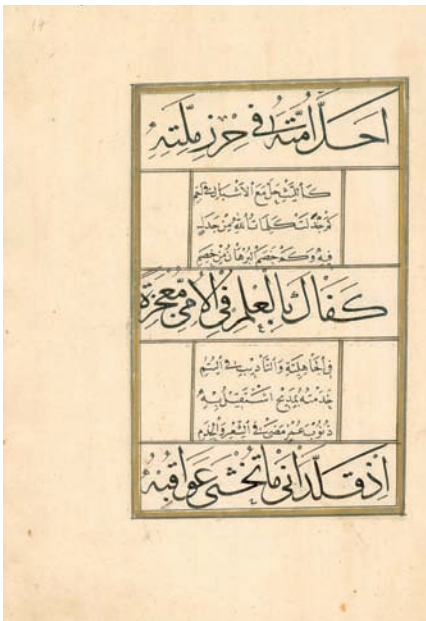 ١٩
اَحَلَّ اُمَّتَهُ فِى حِرْزِ مِلَّتِهِ
كَاللَّيْثِ حَلَّ مَعَ الْاَشْبَالِ فِى اَجَمِ
كَمْ جَدَّلَتْ كَلِمَاتُ اللّٰهِ مِنْ جَدَلٍ
فِيهِ وَكَمْ خَصَمَ الْبُرْهَانُ مِنْ خَصِمِ
كَفَاكَ بِالْعِلْمِ فِى الْاُمِّىِّ مُعْجِزَةً
فِى الْجَاهِلِيَّةِ وَالتَّأْدِيبِ فِى الْيُتُمِ
خَدَمْتُهُ بِمَدِيحٍ اَسْتَقِيلُ بِهِ
ذُنُوبَ عُمْرٍ مَضَى فِى الشِّعْرِ وَالْخِدَمِ
اِذْ قَلَّدَانِىَ مَا تُخْشَى عَوَاقِبُهُ